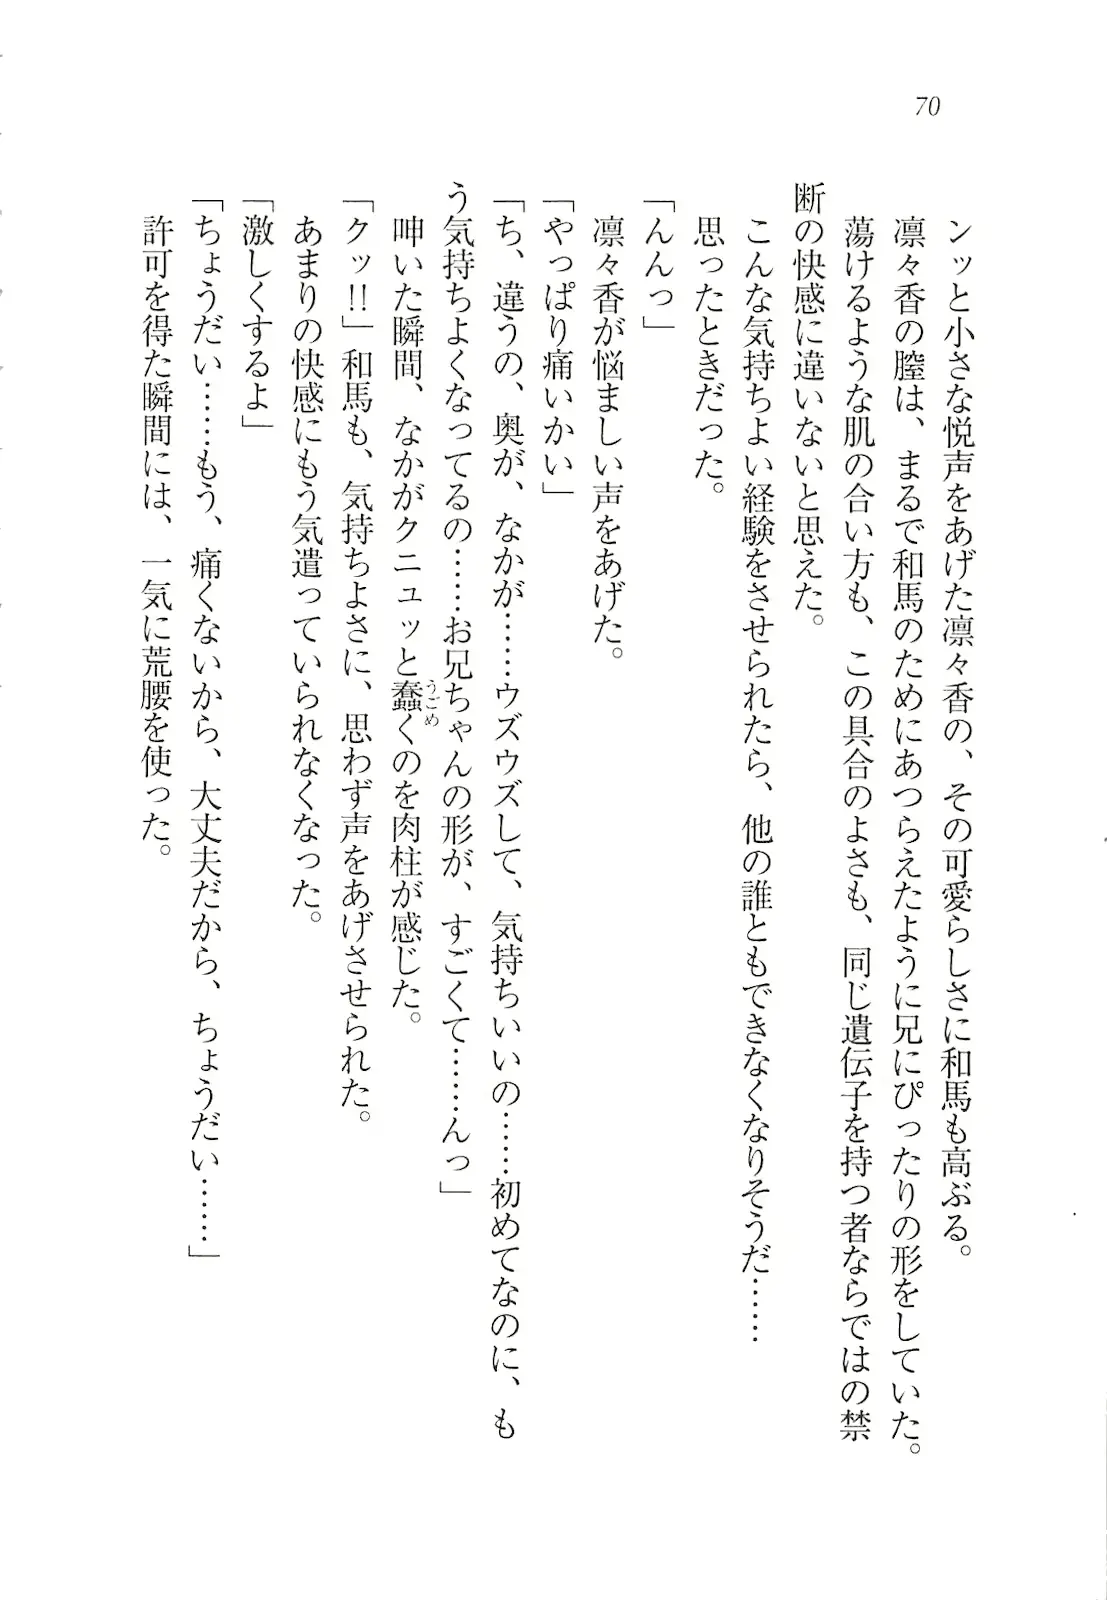 70
ンッと小さな悦声をあげた凛々香の、その可愛らしさに和馬も高ぶる。
凛々香の膣は、まるで和馬のためにあつらえたように兄にぴったりの形をしていた。
蕩けるような肌の合い方も、この具合のよさも、同じ遺伝子を持つ者ならではの禁
断の快感に違いないと思えた。
こんな気持ちよい経験をさせられたら、他の誰ともできなくなりそうだ……
思ったときだった。
「んんっ」
凛々香が悩ましい声をあげた。
「やっぱり痛いかい」
「ち、違うの、奥が、なかが……ウズウズして、気持ちいいの……初めてなのに、も
う気持ちよくなってるの……お兄ちゃんの形が、すごくて……んっ」
呻いた瞬間、なかがクニュッと蠢くのを肉柱が感じた。
うごめ
「クッ!!」和馬も、気持ちよさに、思わず声をあげさせられた。
あまりの快感にもう気遣っていられなくなった。
「激しくするよ」
「ちょうだい……もう、痛くないから、大丈夫だから、ちょうだい……」
許可を得た瞬間には、一気に荒腰を使った。